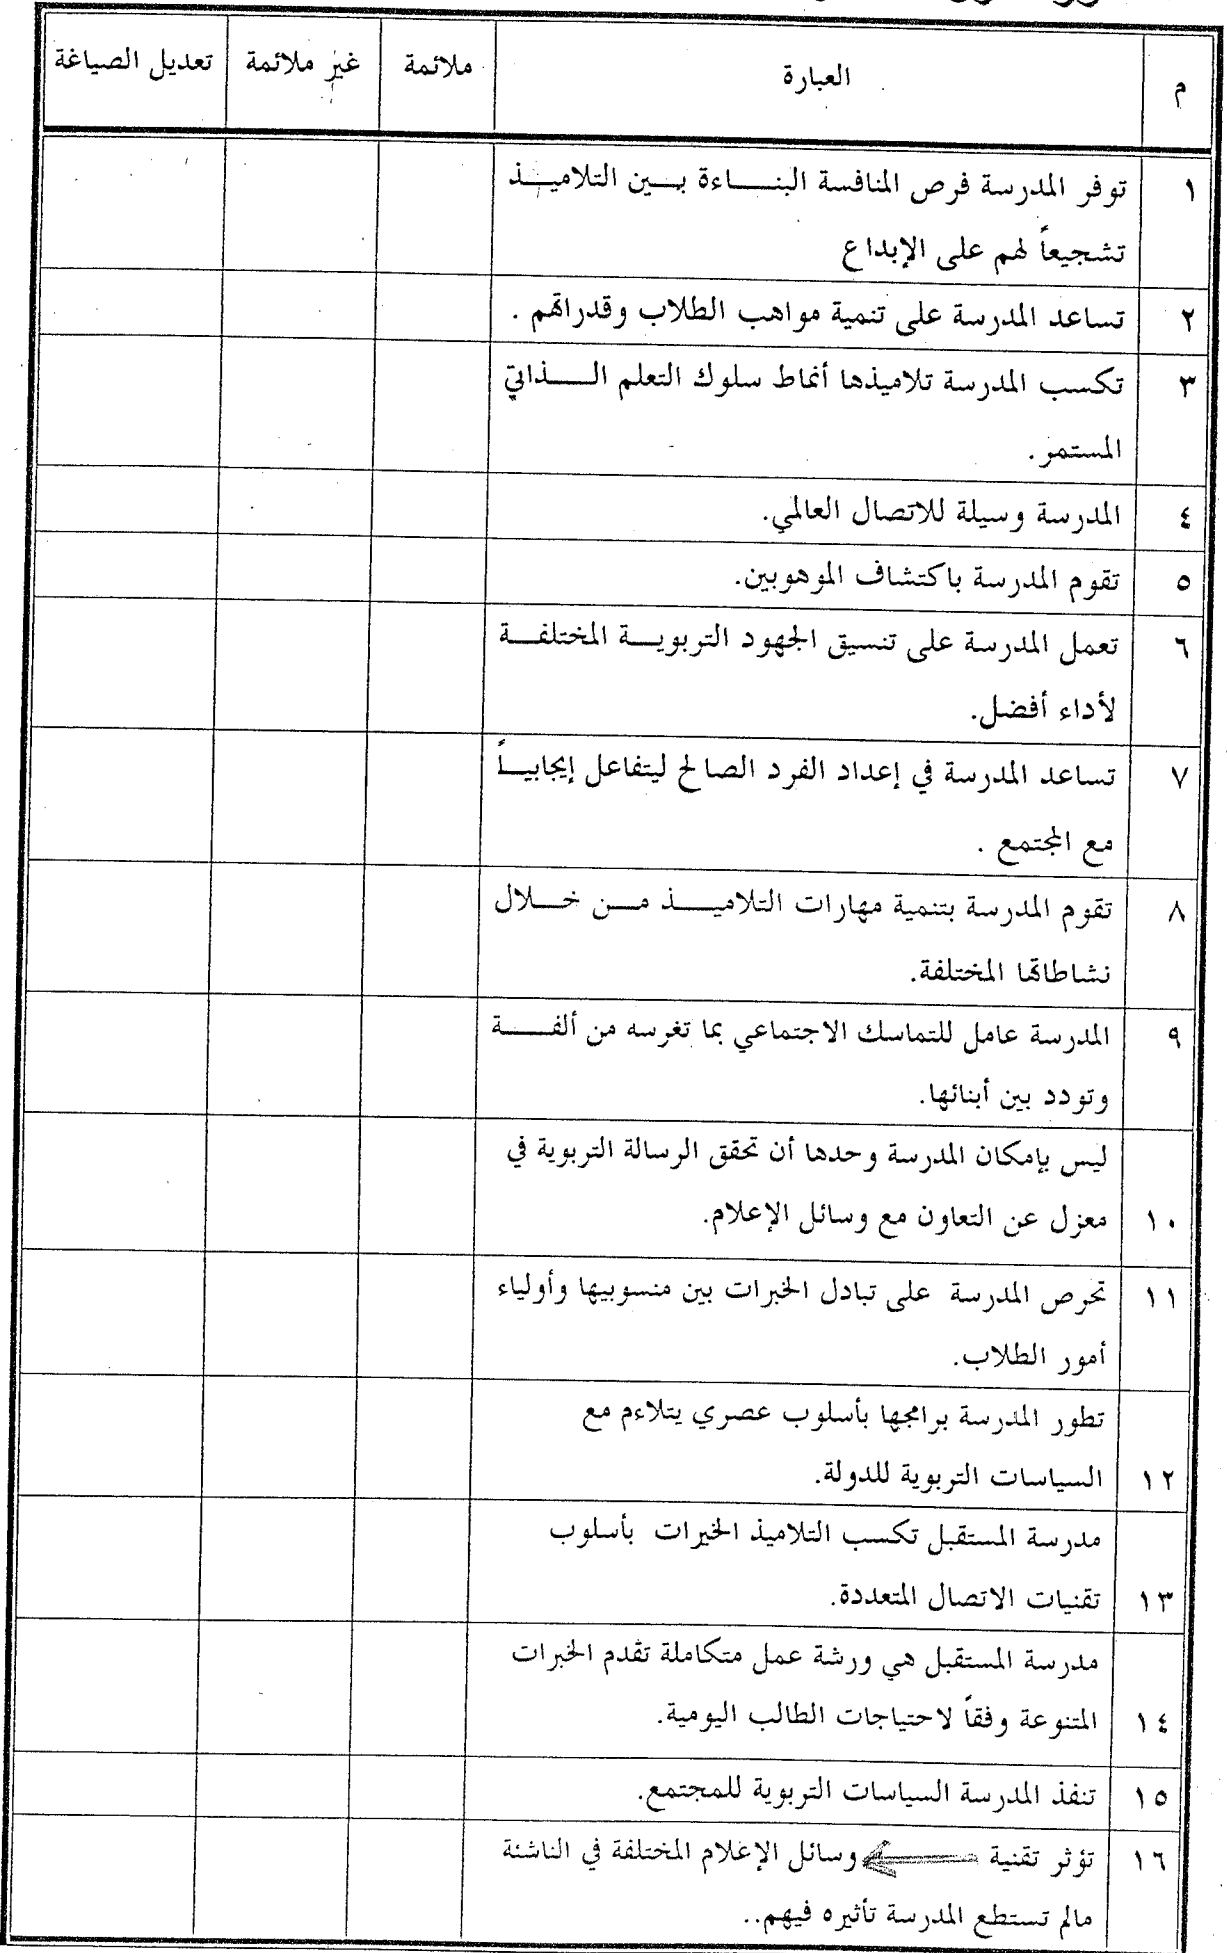 م العبارة ملائمة غير ملائمة تعديل الصياغة
١ توفر المدرسة فرص المنافسة البناءة بين التلاميذ
تشجيعاً لهم على الإبداع
٢ تساعد المدرسة على تنمية مواهب الطلاب وقدراتهم .
٣ تكسب المدرسة تلاميذها أنماط سلوك التعلم الذاتي
المستمر.
٤ المدرسة وسيلة للاتصال العالمي.
٥ تقوم المدرسة باكتشاف الموهوبين.
٦ تعمل المدرسة على تنسيق الجهود التربوية المختلفة
لأداء أفضل.
٧ تساعد المدرسة في إعداد الفرد الصالح ليتفاعل إيجابياً
مع المجتمع .
٨ تقوم المدرسة بتنمية مهارات التلاميذ من خلال
نشاطاتها المختلفة.
٩ المدرسة عامل للتماسك الاجتماعي بما تغرسه من ألفة
وتودد بين أبنائها.
ليس بإمكان المدرسة وحدها أن تحقق الرسالة التربوية في
١٠ معزل عن التعاون مع وسائل الإعلام.
١١ تحرص المدرسة على تبادل الخبرات بين منسوبيها وأولياء
أمور الطلاب.
تطور المدرسة برامجها بأسلوب عصري يتلاءم مع
١٢ السياسات التربوية للدولة.
مدرسة المستقبل تكسب التلاميذ الخبرات بأسلوب
١٣ تقنيات الاتصال المتعددة.
مدرسة المستقبل هي ورشة عمل متكاملة تقدم الخبرات
١٤ المتنوعة وفقاً لاحتياجات الطالب اليومية.
١٥ تنفذ المدرسة السياسات التربوية للمجتمع.
١٦ تؤثر تقنية وسائل الإعلام المختلفة في الناشئة
مالم تستطع المدرسة تأثيره فيهم..